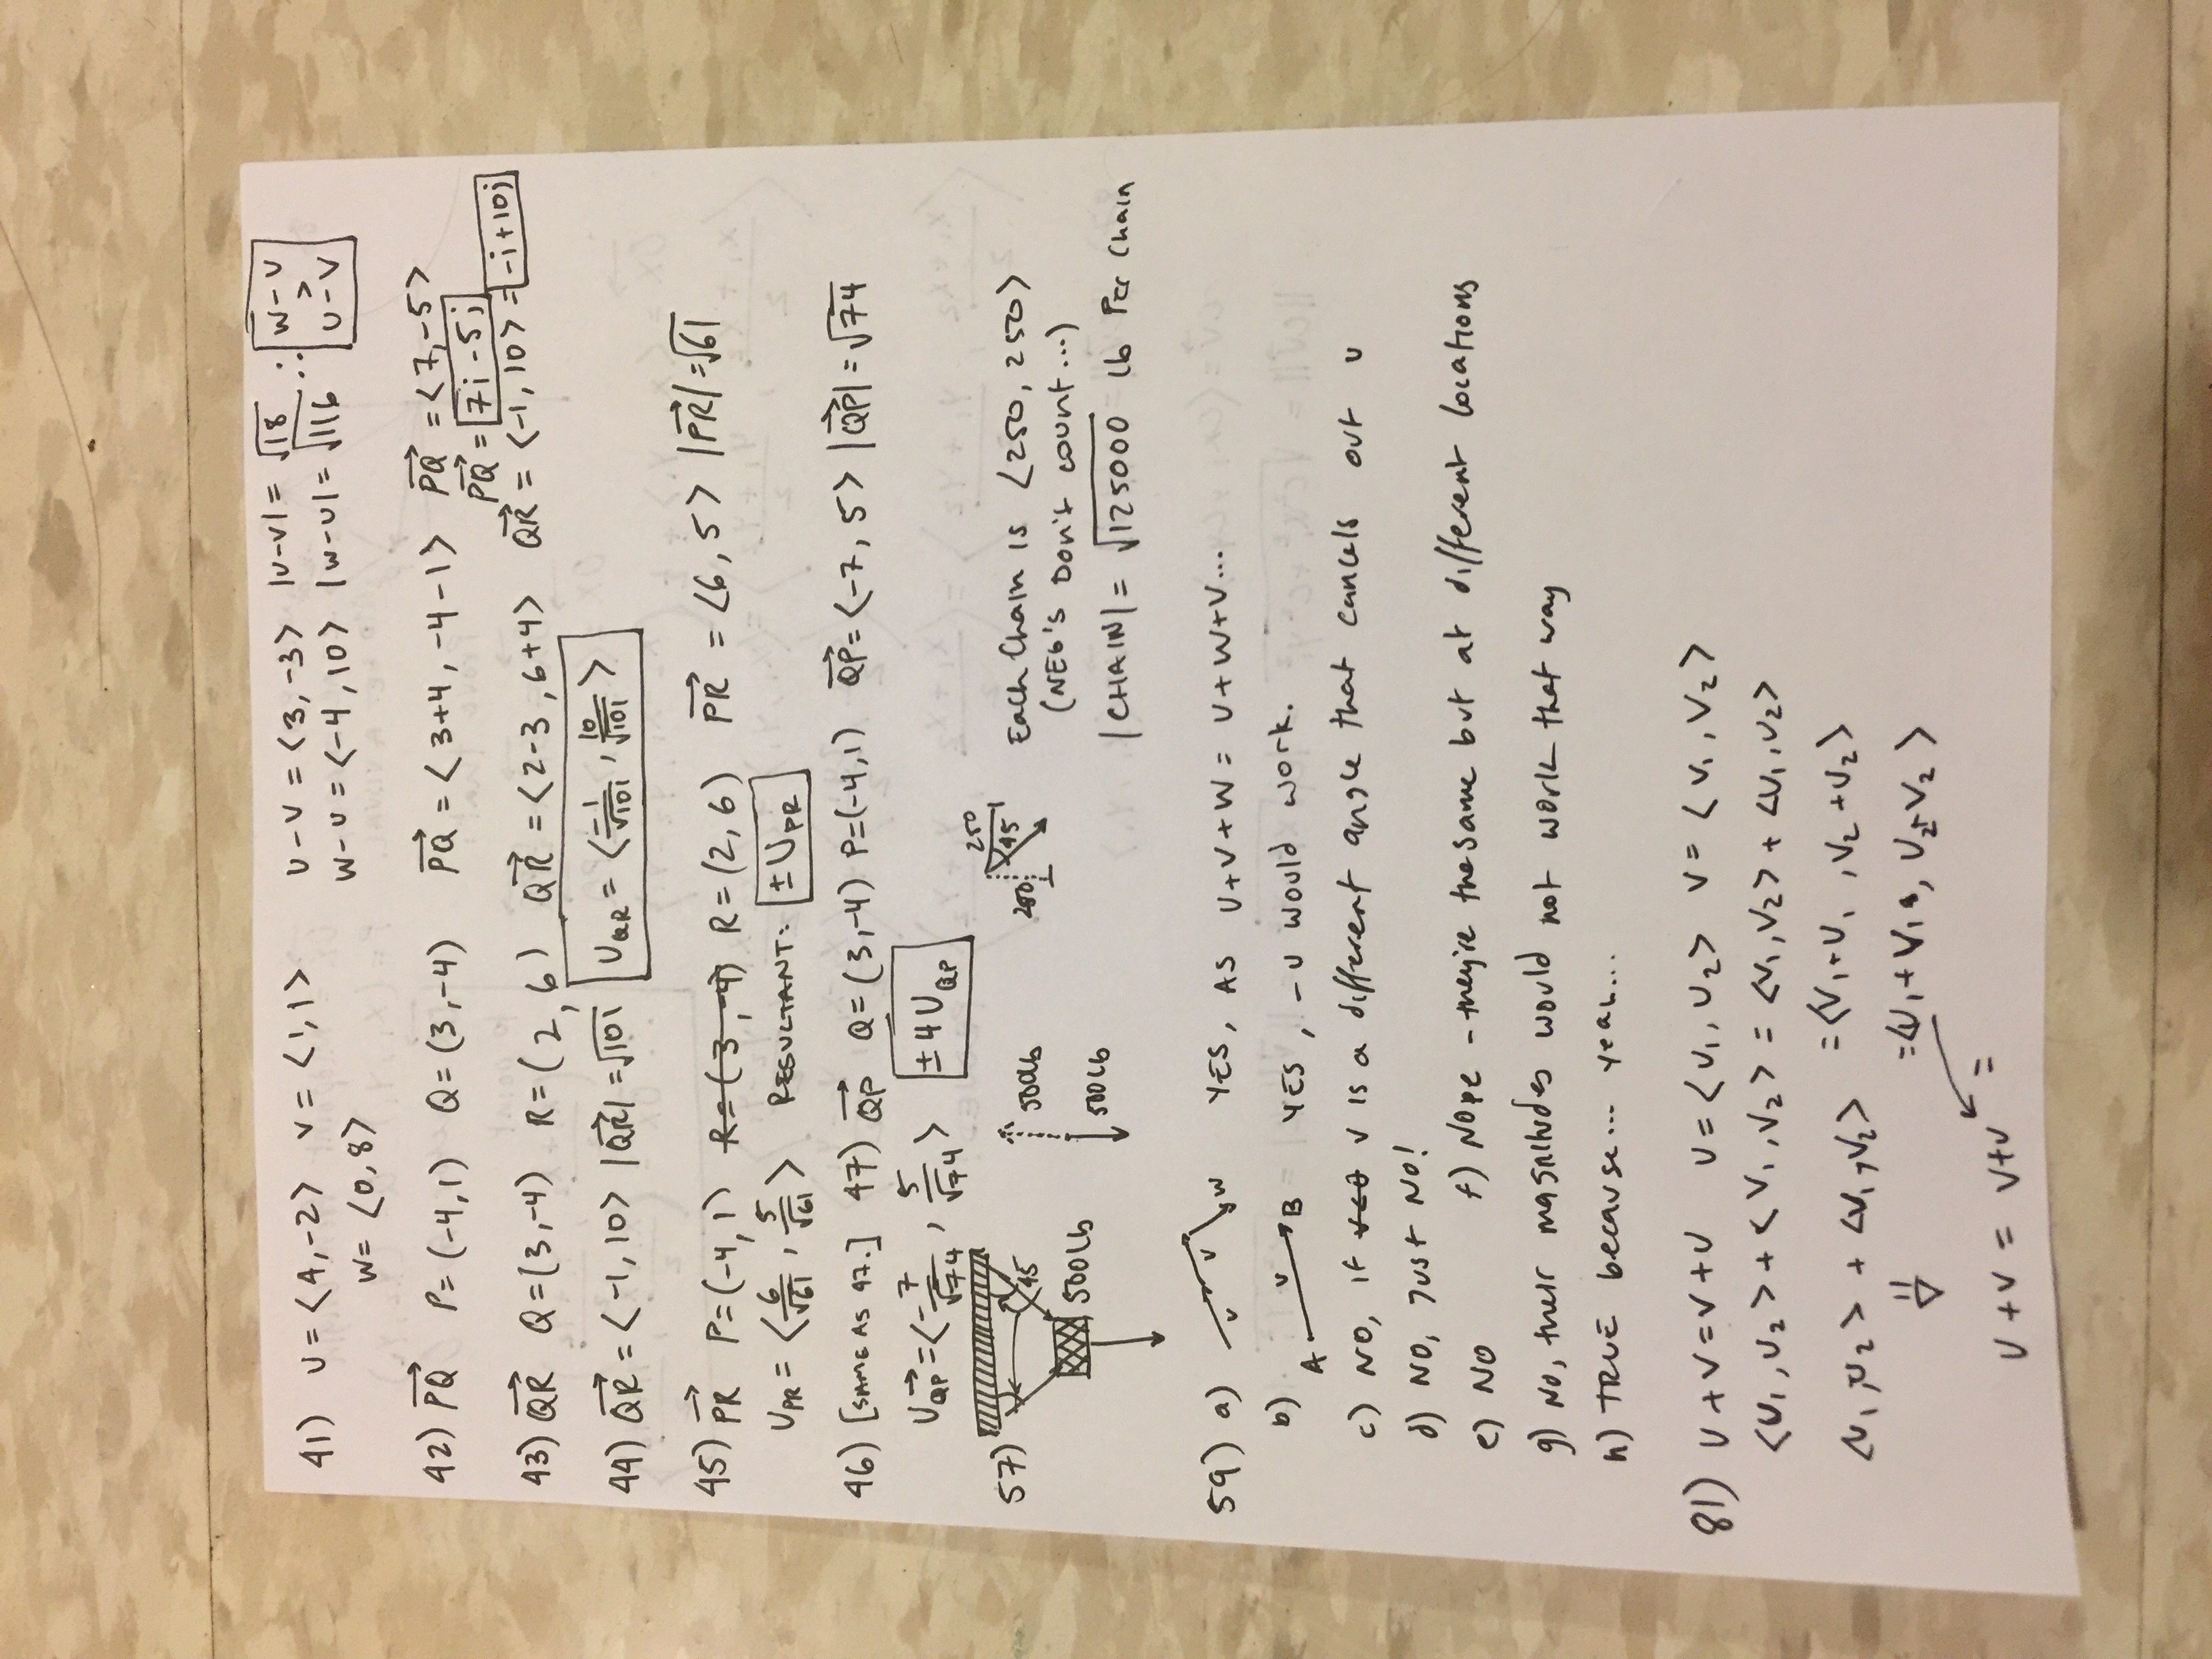 41) U = <4, -2> V = <1, 1> U - V = <3, -3> |U-V| = √18 ∴ W - V
W = <0, 8> W - U = <-4, 10> |W-U| = √116 > U - V
42) PQ→ P = (-4, 1) Q = (3, -4) PQ→ = <3+4, -4-1> PQ→ = <7, -5>
PQ→ = 7i - 5j
43) QR→ Q = (3, -4) R = (2, 6) QR→ = <2-3, 6+4> QR→ = <-1, 10> = -i + 10j
44) QR→ = <-1, 10> |QR→| = √101 U_QR = <-1/√101, 10/√101>
45) PR→ P = (-4, 1) R = (3, -4) R = (2, 6) PR→ = <6, 5> |PR→| = √61
U_PR = <6/√61, 5/√61> RESULTANT: ± U_PR
46) [SAME AS 47.] 47) QP→ Q = (3, -4) P = (-4, 1) QP→ = <-7, 5> |QP→| = √74
U_QP→ = <-7/√74, 5/√74> ± 4 U_QP
57) 45 500lb 500lb 500lb 250 250 45 Each Chain is <250, 250>
(NEG's Don't count...)
|CHAIN| = √125000 lb Per Chain
59) a) v v w YES, AS U+V+W = U+W+V...
b) A v B YES, -U would work.
c) NO, if v<0 v is a different angle that cancels out u
d) NO, Just NO!
e) NO f) Nope - they're the same but at different locations
g) No, their magnitudes would not work that way
h) TRUE because... yeah...
81) U + V = V + U U = <U₁, U₂> V = <V₁, V₂>
<U₁, U₂> + <V₁, V₂> = <V₁, V₂> + <U₁, U₂>
<U₁, U₂> + <V₁, V₂> = <V₁+U₁, V₂+U₂>
= <U₁+V₁, U₂+V₂>
U + V = V+U =